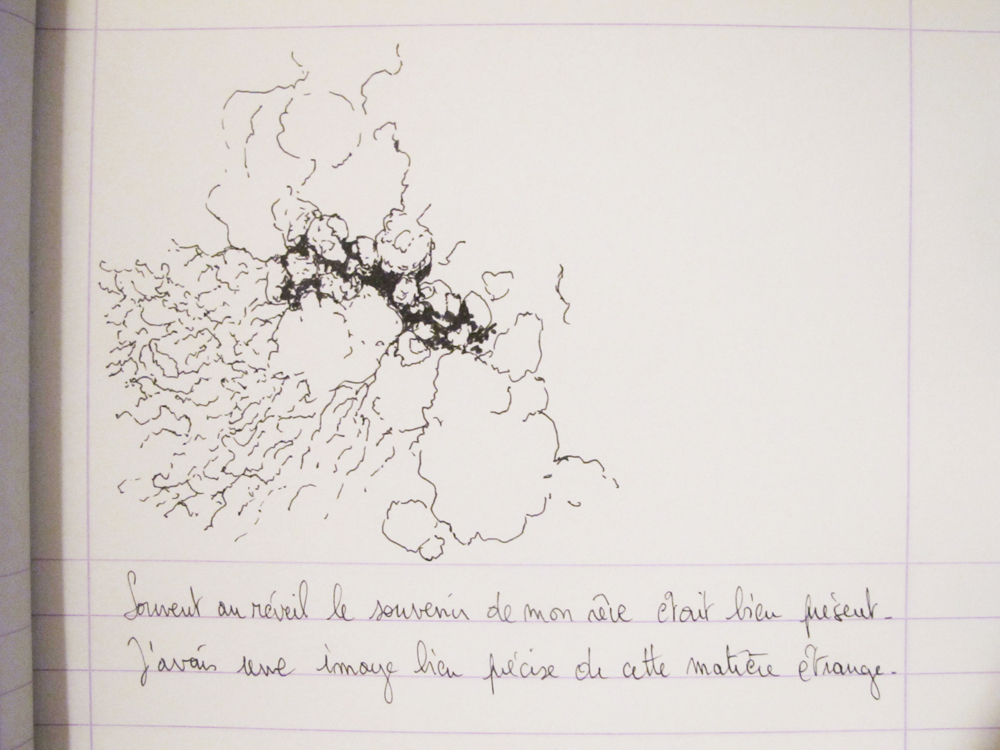 Souvent au réveil le souvenir de mon rêve était bien présent.
J'avais une image bien précise de cette matière étrange.